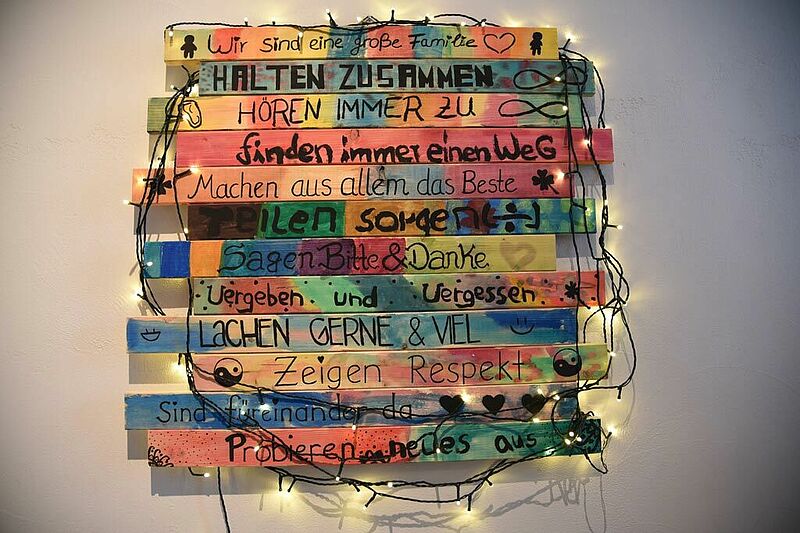 Wir sind eine große Familie
HALTEN ZUSAMMEN
HÖREN IMMER ZU
finden immer einen WeG
Machen aus allem das Beste
Teilen sorgen(÷)
Sagen Bitte & Danke
Vergeben und Vergessen
LACHEN GERNE & VIEL
Zeigen Respekt
Sind füreinander da
Probieren neues aus